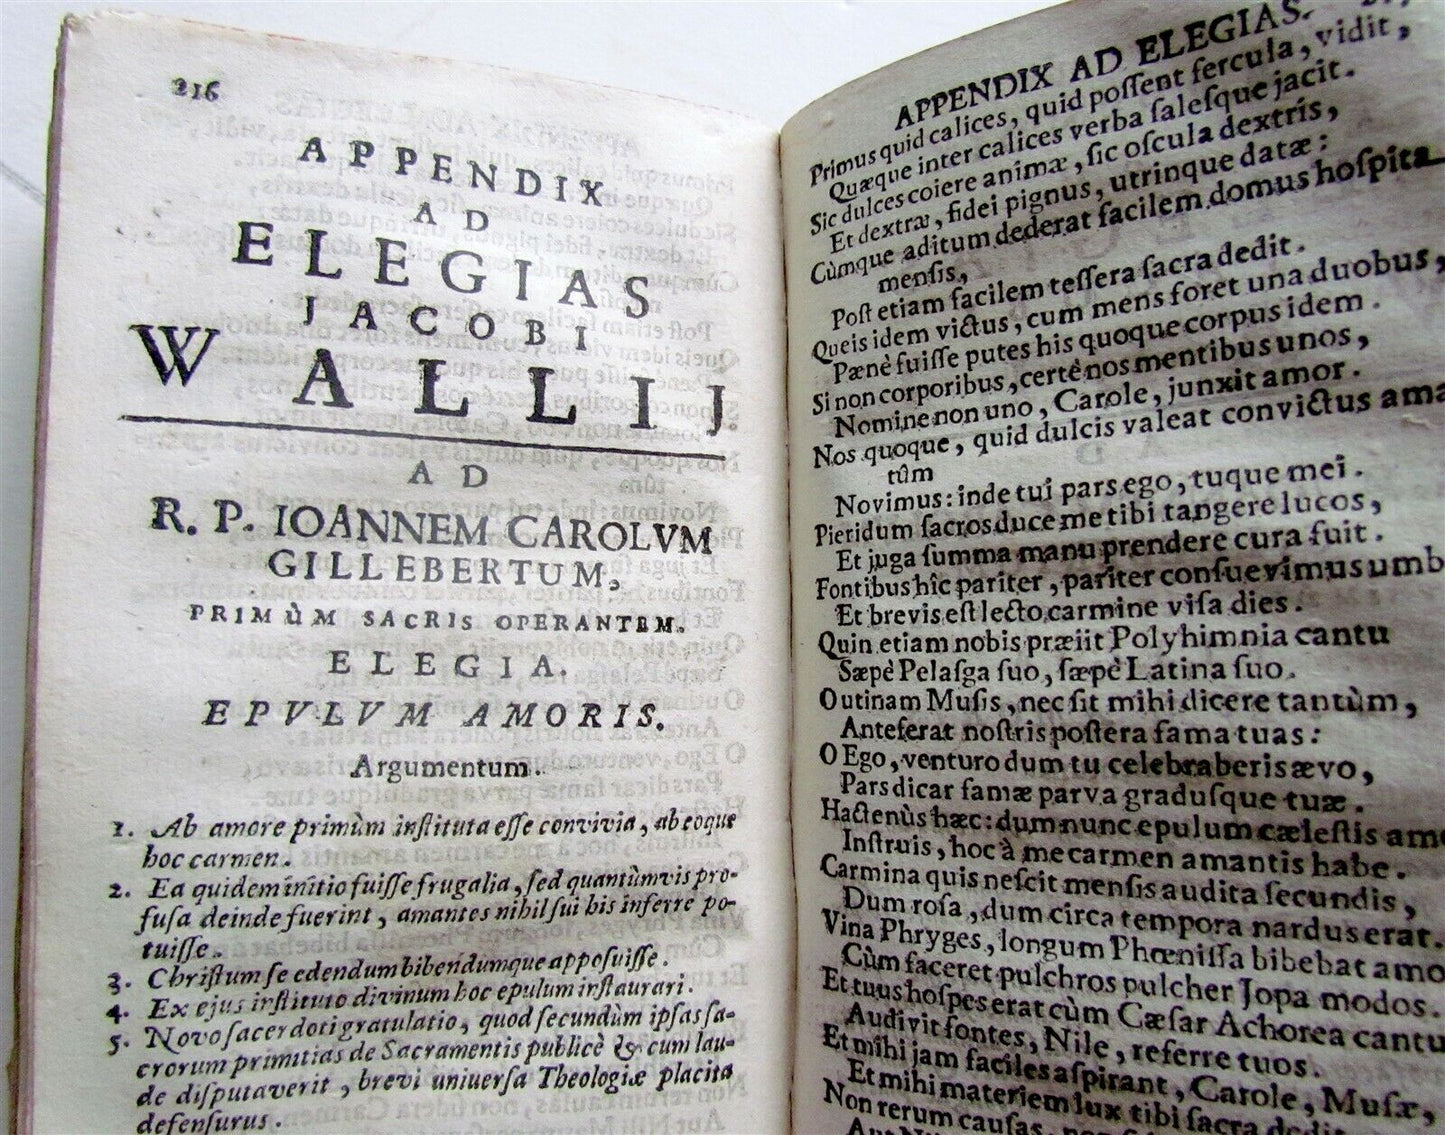 216
APPENDIX
AD
ELEGIAS
JACOBI
WALLIJ
AD
R. P. IOANNEM CAROLVM
GILLEBERTUM,
PRIMÙM SACRIS OPERANTEM.
ELEGIA.
EPVLVM AMORIS.
Argumentum.
1. Ab amore primùm instituta esse convivia, ab eoque
hoc carmen.
2. Ea quidem initio fuisse frugalia, sed quantùmvis pro-
fusa deinde fuerint, amantes nihil sui bis inferre po-
tuisse.
3. Christum se edendum bibendumque apposuisse.
4. Ex ejus instituto divinum hoc epulum instaurari.
5. Novo sacerdoti gratulatio, quod secundùm ipsas sa-
crorum primitias de Sacramentis publicè & cum lau-
de disputaverit, brevi universa Theologiæ placita
defensurus.
APPENDIX AD ELEGIAS.
Primus quid calices, quid possent fercula, vidit,
Quæque inter calices verba salesque jacit.
Sic dulces coiere animæ, sic oscula dextris,
Et dextræ, fidei pignus, utrinque datæ:
Cùmque aditum dederat facilem domus hospita
mensis,
Post etiam facilem tessera sacra dedit.
Queis idem victus, cum mens foret una duobus,
Pænè fuisse putes his quoque corpus idem.
Si non corporibus, certè nos mentibus unos,
Nomine non uno, Carole, junxit amor.
Nos quoque, quid dulcis valeat convictus aman-
tûm
Novimus: inde tui pars ego, tuque mei.
Pieridum sacros duce me tibi tangere lucos,
Et juga summa manu prendere cura fuit.
Fontibus hîc pariter, pariter consuevimus umb
Et brevis est lecto carmine visa dies.
Quin etiam nobis præiit Polyhimnia cantu
Sæpè Pelasga suo, sæpè Latina suo.
O utinam Musis, nec sit mihi dicere tantùm,
Anteferat nostris postera fama tuas:
O Ego, venturo dum tu celebraberis ævo,
Pars dicar famæ parva gradusque tuæ.
Hactenùs hæc: dum nunc epulum cælestis amo
Instruis, hoc à me carmen amantis habe.
Carmina quis nescit mensis audita secundis,
Dum rosa, dum circa tempora nardus erat.
Vina Phryges, longum Phœnissa bibebat amo
Cùm faceret pulchros pulcher Jopa modos.
Et tuus hospes erat cùm Cæsar Achorea cantu
Audivit fontes, Nile, referre tuos.
Et mihi jam faciles aspirant, Carole, Musæ,
Et mihi materiem lux tibi sacra dedit
Non rerum causas,
Aut Nili